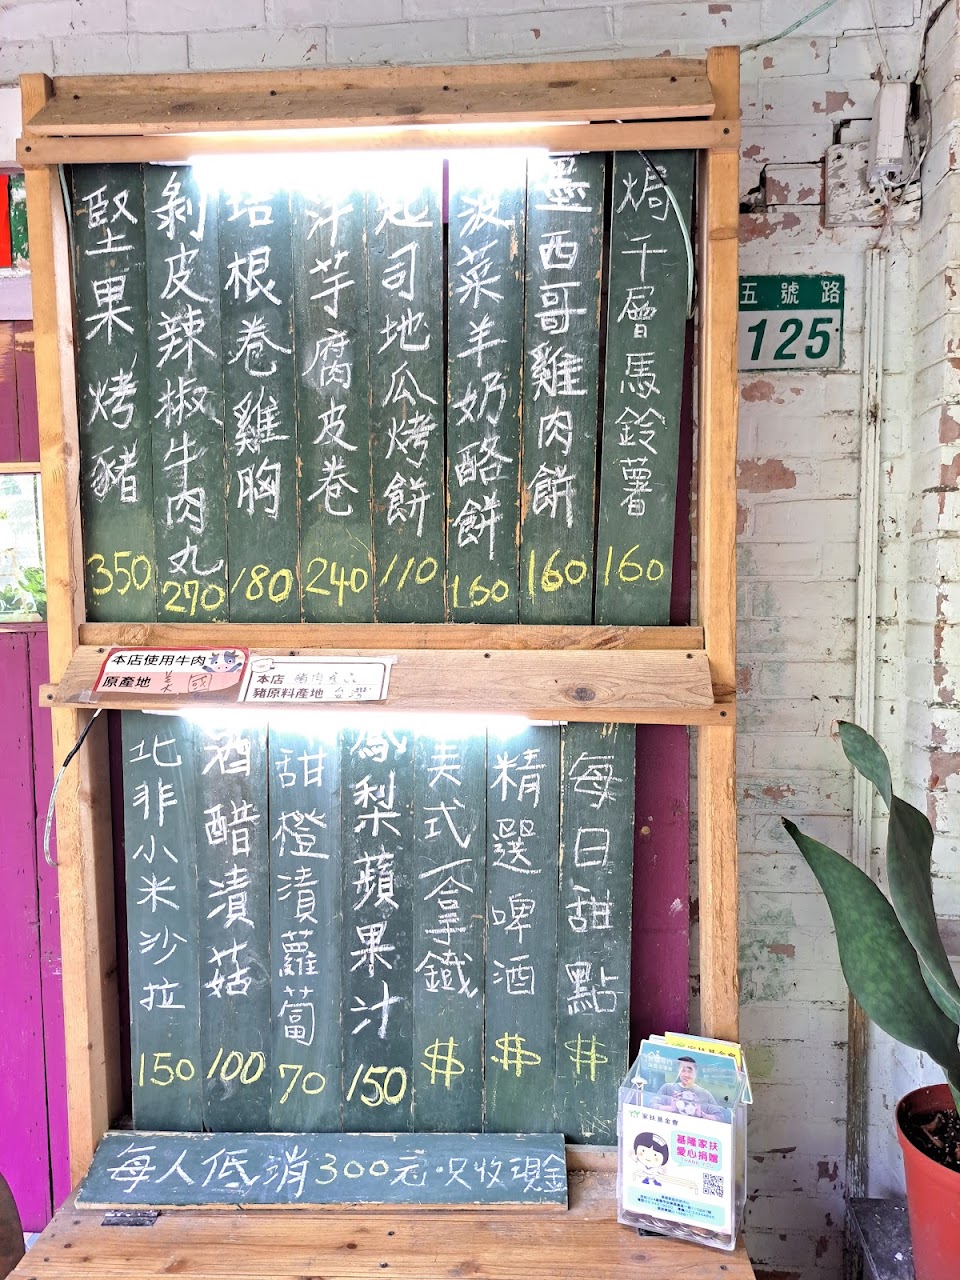 焗千層馬鈴薯 160
墨西哥雞肉餅 160
菠菜羊奶酪餅 160
起司地瓜烤餅 110
洋芋腐皮卷 240
培根卷雞胸 180
剝皮辣椒牛肉丸 270
堅果烤豬 350
本店使用牛肉
原產地 美國
本店 豬肉產品
豬原料產地 台灣
每日甜點 $
精選啤酒 $
美式拿鐵 $
鳳梨蘋果汁 150
甜橙漬蘿蔔 70
酒醋漬菇 100
北非小米沙拉 150
每人低消300元·只收現金
五號路
125
家扶基金會
家扶基金會
基隆家扶
愛心捐贈